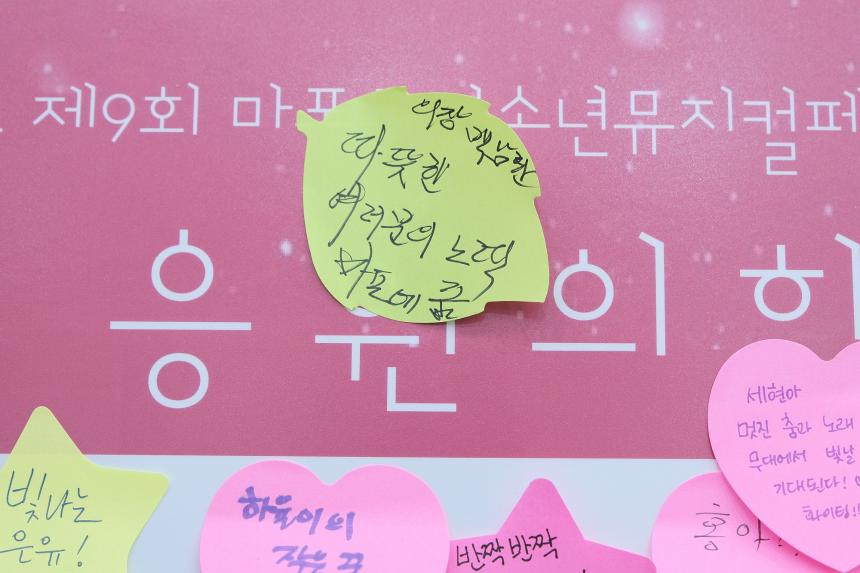 제9회 마포 소년뮤지컬페
응원의
의장 백남환
따뜻한
여러분의 노력
마포에 꿈
빛나는
은유!
하율이의
작은
반짝반짝
홍아
세현아
멋진 춤과 노래
무대에서 빛날
기대된다!
화이팅!!